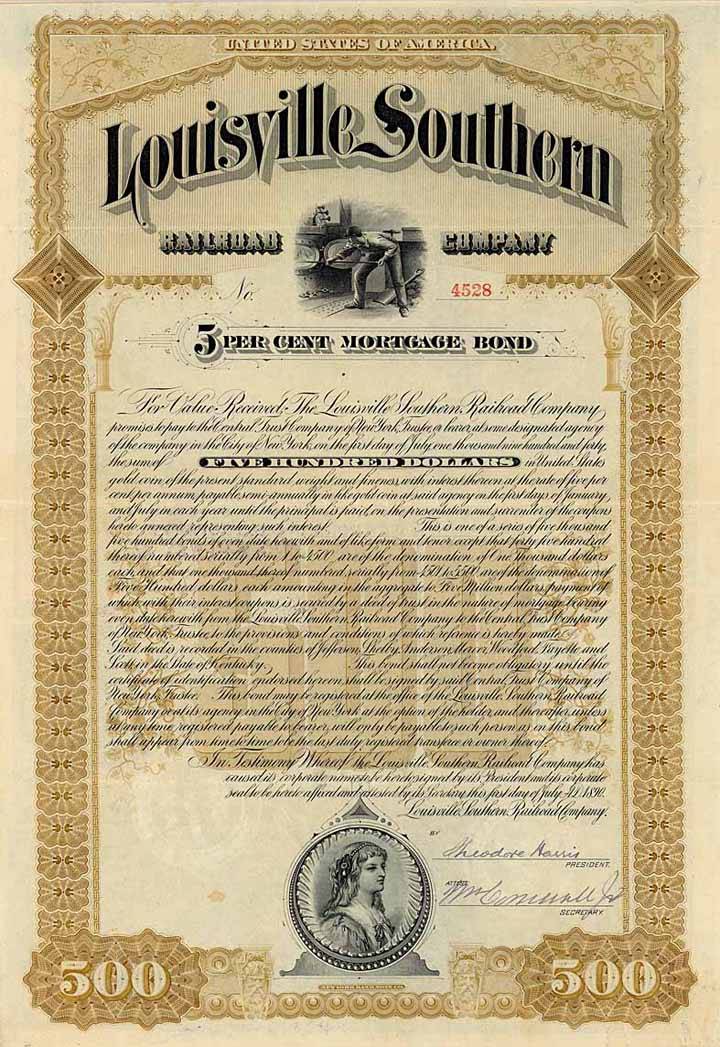 UNITED STATES OF AMERICA.
Louisville Southern
RAILROAD COMPANY
No. 4528
5 PER CENT MORTGAGE BOND
For Value Received, The Louisville Southern Railroad Company
promises to pay to the Central Trust Company of New York, Trustee, or bearer, at some designated agency
of the company in the City of New York, on the first day of July, one thousand nine hundred and forty,
the sum of FIVE HUNDRED DOLLARS in United States
gold coin of the present standard weight and fineness, with interest thereon at the rate of five per
cent per annum, payable semi-annually in like gold coin at said agency on the first days of January,
and July in each year until the principal is paid, on the presentation and surrender of the coupons
hereto annexed representing such interest. This is one of a series of five thousand
five hundred bonds of even date herewith and of like form and tenor except that forty five hundred
thereof numbered serially from 1 to 4500 are of the denomination of One Thousand dollars
each, and that one thousand thereof numbered serially from 4501 to 5500, are of the denomination of
Five Hundred dollars each amounting in the aggregate to Five Million dollars, payment of
which with their interest coupons is secured by a deed of trust in the nature of mortgage bearing
even date herewith from the Louisville Southern Railroad Company to the Central Trust Company
of New York, Trustee, to the provisions and conditions of which reference is hereby made.
Said deed is recorded in the counties of Jefferson, Shelby, Anderson, Mercer, Woodford, Fayette and
Scott in the State of Kentucky. This bond shall not become obligatory until the
certificate of identification endorsed hereon shall be signed by said Central Trust Company of
New York, Trustee. This bond may be registered at the office of the Louisville Southern Railroad
Company or at its agency in the City of New York at the option of the holder, and thereafter, unless
at any time registered payable to bearer, will only be payable to such person as in this bond
shall appear from time to time to be the last duly registered transferee or owner thereof.
In Testimony Whereof the Louisville Southern Railroad Company has
caused its corporate name to be hereto signed by its President and its corporate
seal to be hereto affixed and attested by its Secretary this first day of July A.D. 1890.
Louisville Southern Railroad Company,
BY
Theodore Harris
PRESIDENT.
ATTEST
Wm Cornwall Jr
SECRETARY
500 500
NEW YORK BANK NOTE CO.